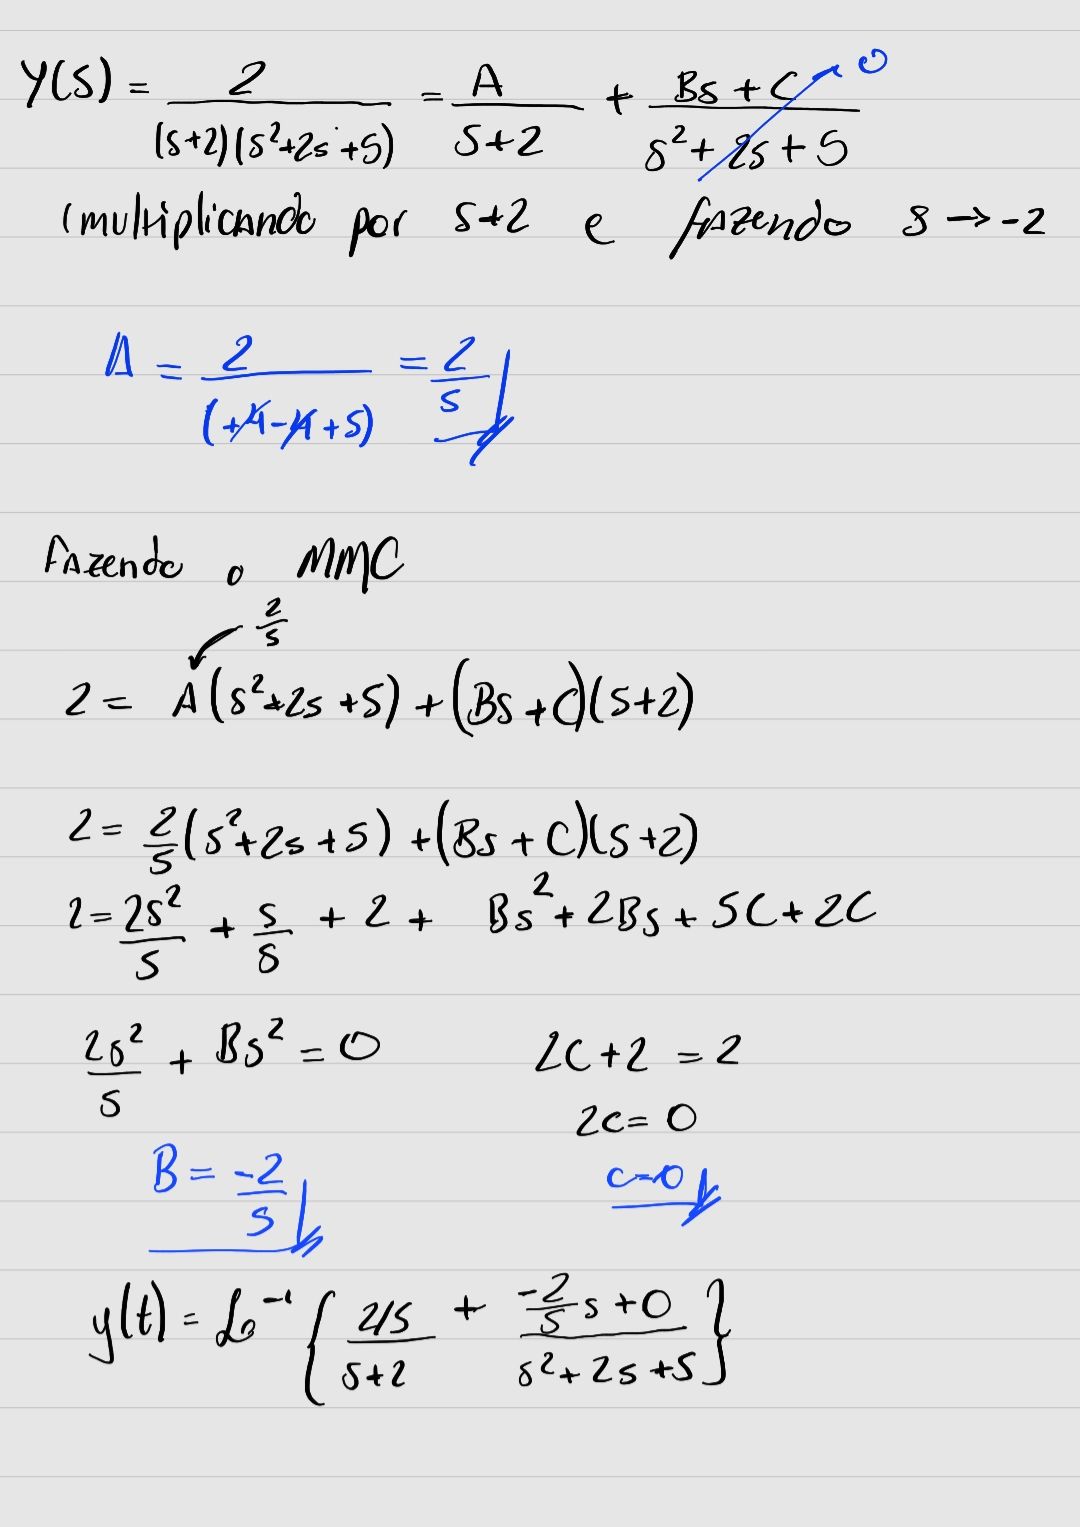 Y(S) = 2/((s+2)(s²+2s+5)) = A/(s+2) + (Bs + C)/(s²+2s+5) → 0
(multiplicando por s+2 e fazendo s → -2
A = 2/(+4-4+5) = 2/5
Fazendo o MMC
2/5
2 = A(s²+2s+5) + (Bs+C)(s+2)
2 = 2/5(s²+2s+5) + (Bs+C)(s+2)
2 = 2s²/5 + s/s + 2 + Bs² + 2Bs + sC + 2C
2s²/5 + Bs² = 0 2C+2 = 2
2C = 0
B = -2/5 C=0
y(t) = L⁻¹{ (2/5)/(s+2) + (-2/5 s+0)/(s²+2s+5) }